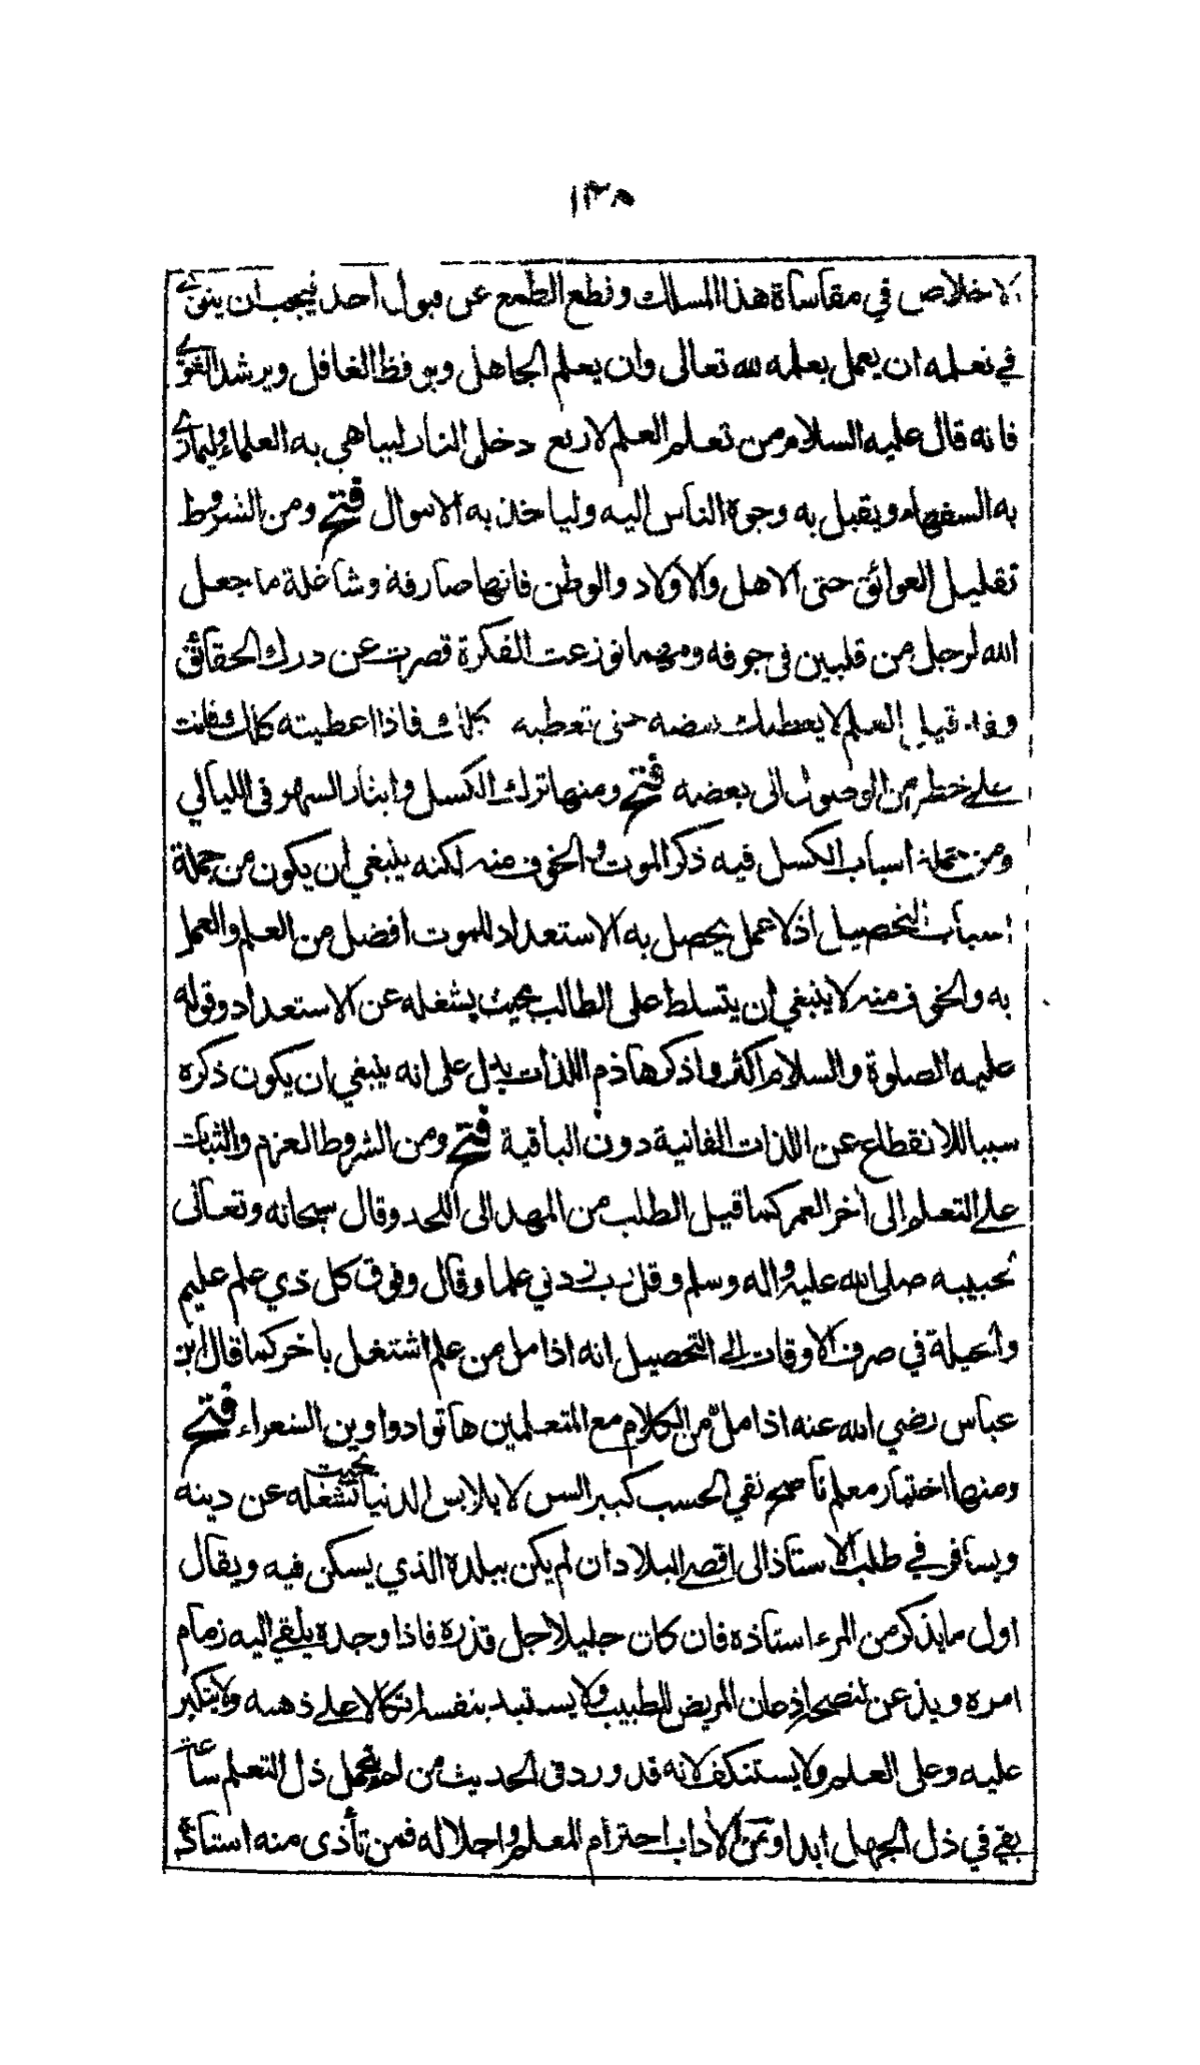 ١٣٨
الاخلاص في مقاساة هذا المسلك وقطع الطمع عن قبول احد فيجب ان ينوي
في تعلمه ان يعمل بعلمه لله تعالى وان يعلم الجاهل ويوقظ الغافل ويرشد الغوي
فانه قال عليه السلام من تعلم العلم لاربع دخل النار ليباهي به العلماء وليماري
به السفهاء ويقبل به وجوه الناس اليه ولياخذ به الاموال فتح ومن الشروط
تقليل العوائق حتى الاهل والاولاد والوطن فانها صارفة وشاغلة ما جعل
الله لرجل من قلبين في جوفه ومهما توزعت الفكرة قصرت عن درك الحقائق
وقد قيل العلم لا يعطيك بعضه حتى تعطيه كلك فاذا اعطيته كلك فانت
على خطر من الوصول الى بعضه فتح ومنها ترك الكسل وايثار السهر في الليالي
ومن جملة اسباب الكسل فيه ذكر الموت والخوف منه لكنه ينبغي ان يكون من جملة
اسباب التحصيل اذ لا عمل يحصل به الاستعداد للموت افضل من العلم والعمل
به والخوف منه لا ينبغي ان يتسلط على الطالب بحيث يشغله عن الاستعداد وقوله
عليه الصلوة والسلام اكثروا ذكر هاذم اللذات يدل على انه ينبغي ان يكون ذكره
سببا للانقطاع عن اللذات الفانية دون الباقية فتح ومن الشروط العزم والثبات
على التعلم إلى أخر العمر كما قيل الطلب من المهد الى اللحد وقال سبحانه وتعالى
لحبيبه صلى الله عليه واله وسلم وقل رب زدني علما وقال وفوق كل ذي علم عليم
والحيلة في صرف الاوقات الى التحصيل انه اذا مل من علم اشتغل بأخر كما قال ابن
عباس رضي الله عنه اذا مل من الكلام مع المتعلمين هاتوا دواوين الشعراء فتح
ومنها اختيار معلم ناصح نقي الحسب كبير السن لا يلابس الدنيا بحيث تشغله عن دينه
ويسافر في طلب الاستاذ الى اقصى البلاد ان لم يكن ببلده الذي يسكن فيه ويقال
اول ما يذكر من المرء استاذه فان كان جليلا جل قدره فاذا وجده يلقي اليه زمام
امره ويذعن لنصحه اذعان المريض للطبيب ولا يستبد بنفسه اتكالا على ذهنه ولا يتكبر
عليه وعلى العلم ولا يستنكف لانه قد ورد في الحديث من لم يتحمل ذل التعلم ساعة
بقي في ذل الجهل ابدا ومن الأداب احترام المعلم واجلاله فمن تأذى منه استاذه